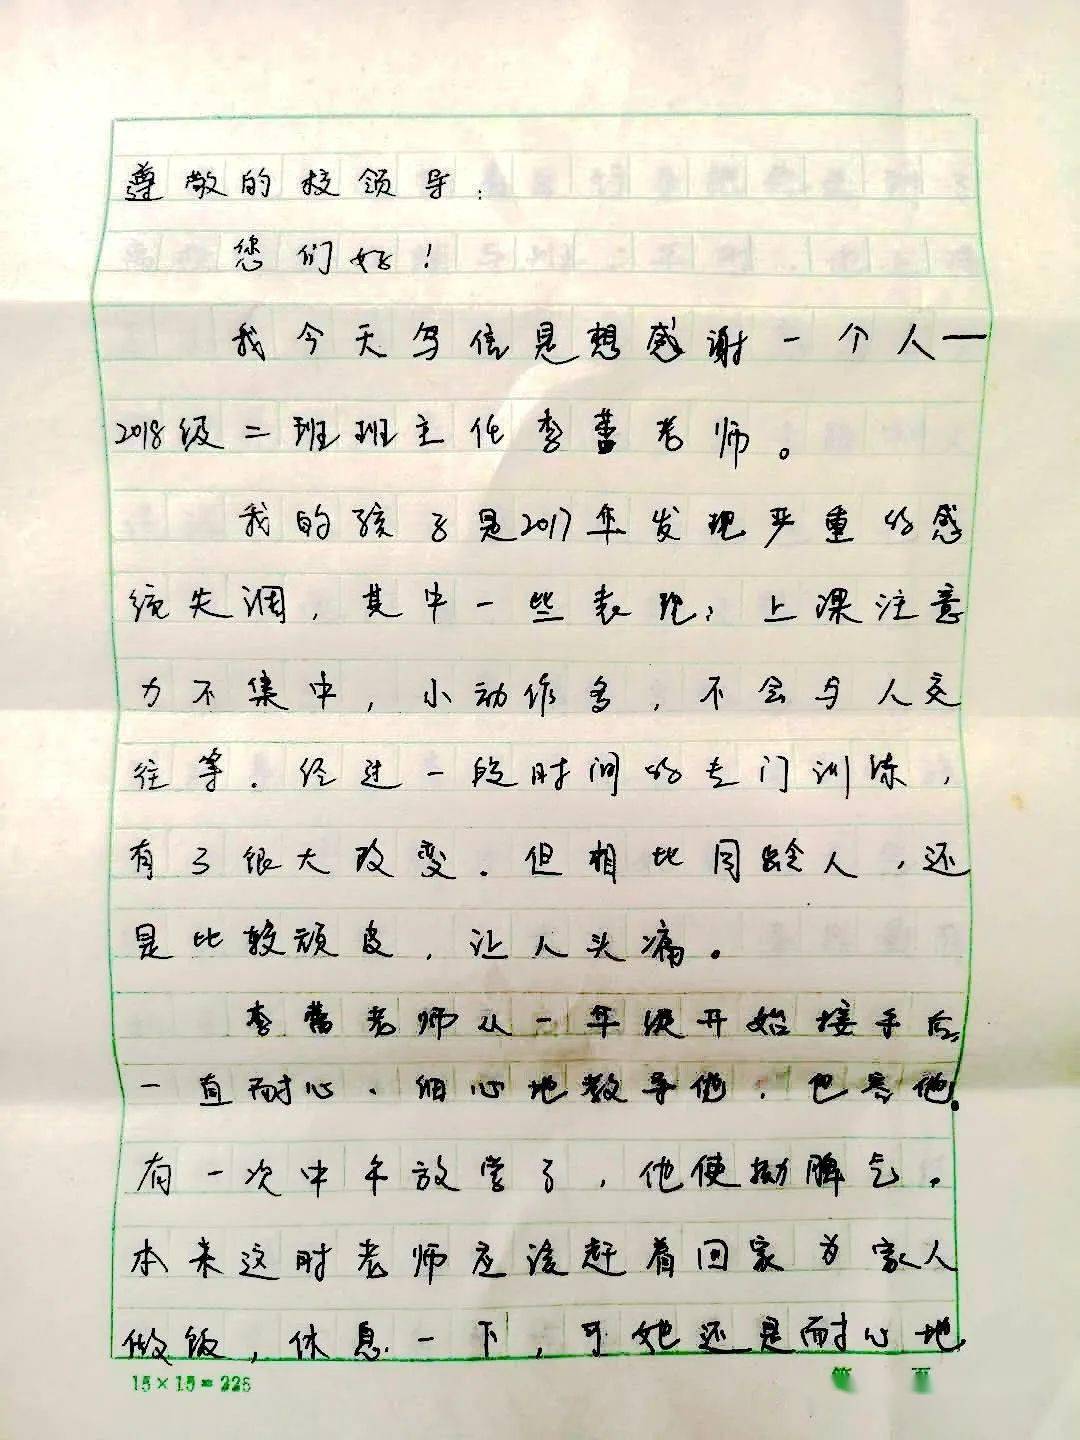 尊敬的校领导：
您们好！
我今天写信是想感谢一个人—
2018级二班班主任李蕾老师。
我的孩子是2017年发现严重的感
统失调，其中一些表现：上课注意
力不集中，小动作多，不会与人交
往等。经过一段时间的专门训练，
有了很大改变。但相比同龄人，还
是比较顽皮，让人头痛。
李蕾老师从一年级开始接手后，
一直耐心、细心地教导他，包容他。
有一次中午放学了，他使拗脾气。
本来这时老师应该赶着回家为家人
做饭，休息一下，可她还是耐心地
15×15=225
第 页